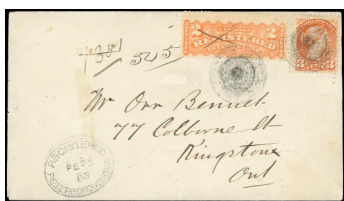 2 REGISTERED 2
3 3
545
Mr Orr Bennett
77 Colborne St
Kingston
Ont
REGISTERED
FE 25
PETERBOROUGH